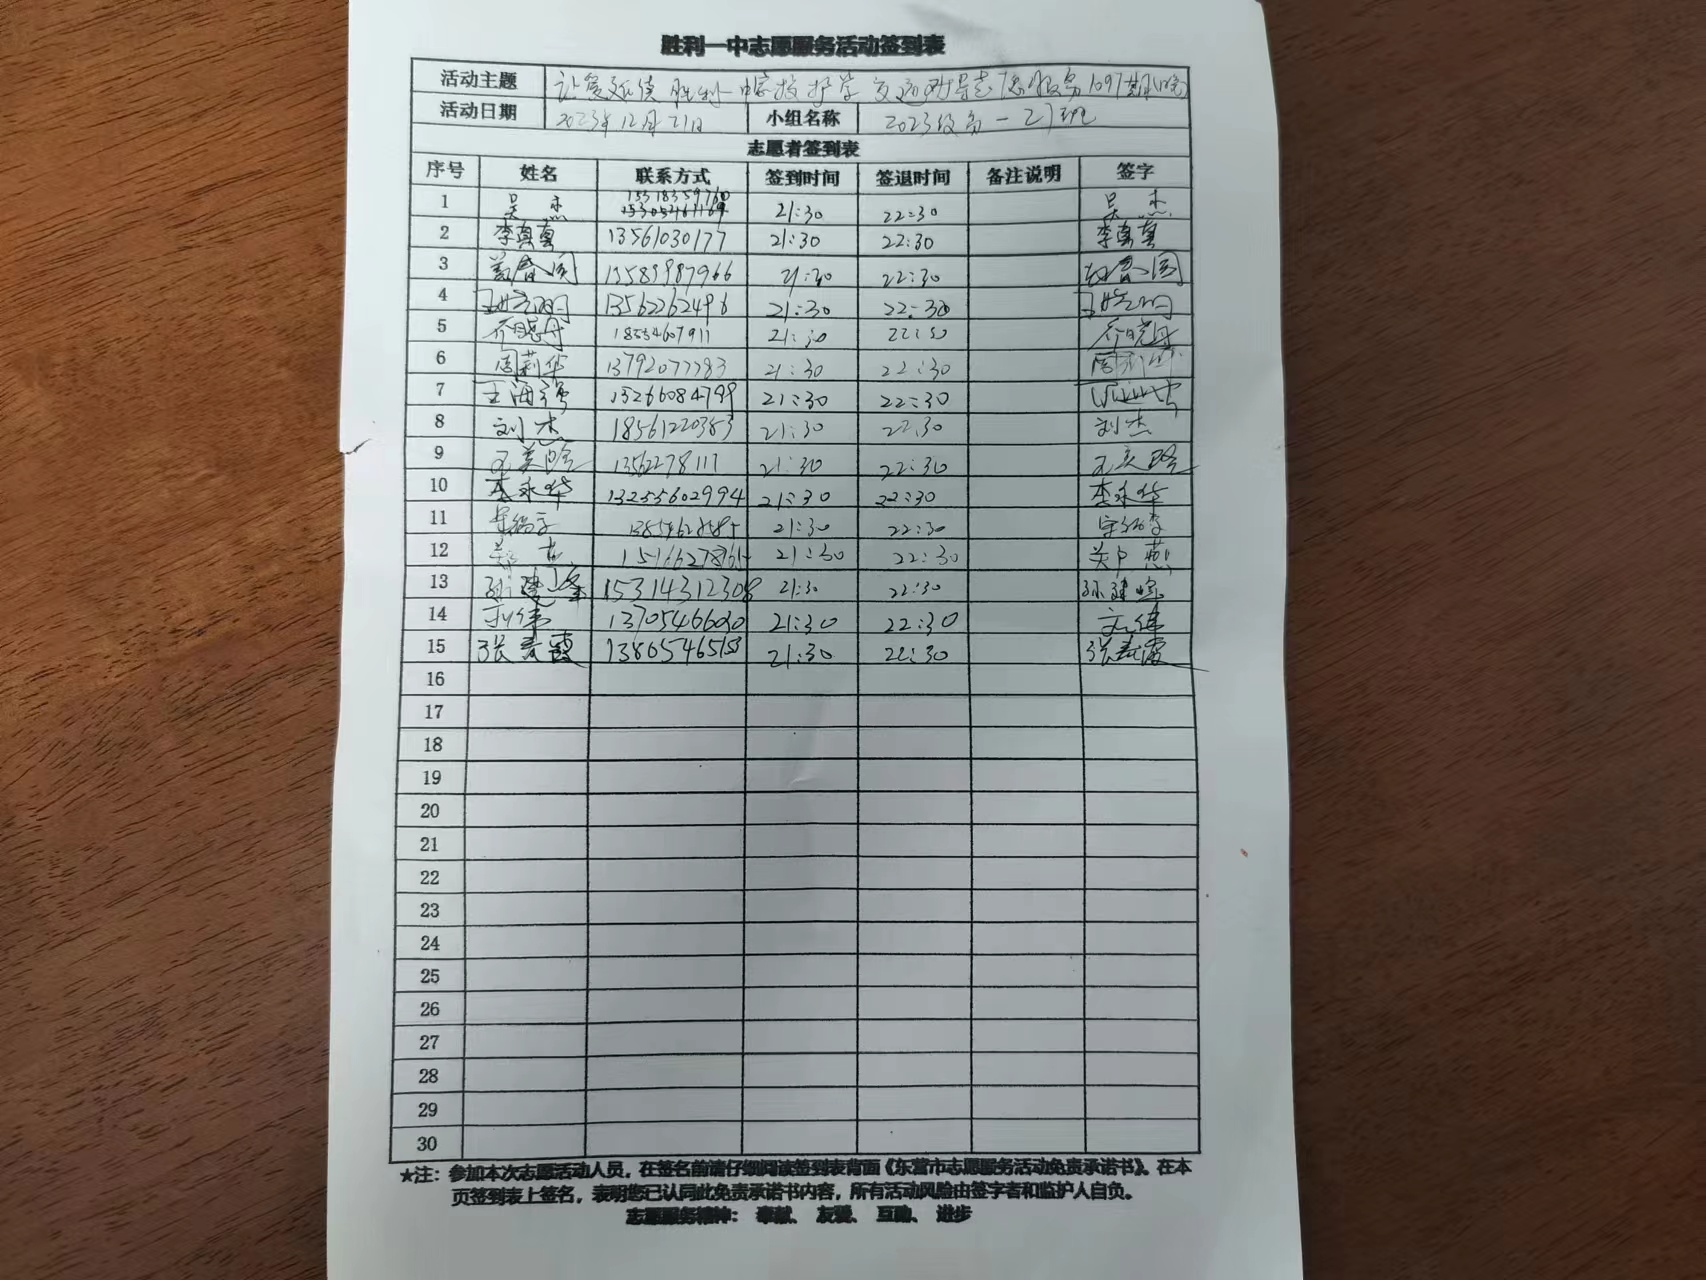 胜利一中志愿服务活动签到表
活动主题 让爱延续 胜利一中家校护学 交通劝导志愿服务1097期(晚)
活动日期 2023年12月21日 小组名称 2023级高一 21班
志愿者签到表
序号 姓名 联系方式 签到时间 签退时间 备注说明 签字
1 吴杰 15318359760 21:30 22:30 吴杰
2 李真真 13561030177 21:30 22:30 李真真
3 13589987966 21:30 22:30
4 13562262496 21:30 22:30
5 乔晓丹 18554607911 21:30 22:30 乔晓丹
6 周莉华 13792077783 21:30 22:30 周莉华
7 王海强 13266084799 21:30 22:30
8 刘杰 18561220383 21:30 22:30 刘杰
9 13562278117 21:30 22:30
10 李永华 13255602994 21:30 22:30 李永华
11 21:30 22:30
12 郑燕 21:30 22:30 郑燕
13 孙建峰 15314312308 21:30 22:30 孙建峰
14 刘伟 13705466030 21:30 22:30 刘伟
15 张春霞 21:30 22:30 张春霞
16
17
18
19
20
21
22
23
24
25
26
27
28
29
30
★注：参加本次志愿活动人员，在签名前请仔细阅读签到表背面《东营市志愿服务活动免责承诺书》。在本
页签到表上签名，表明您已认同此免责承诺书内容，所有活动风险由签字者和监护人自负。
志愿服务精神： 奉献、 友爱、 互助、 进步